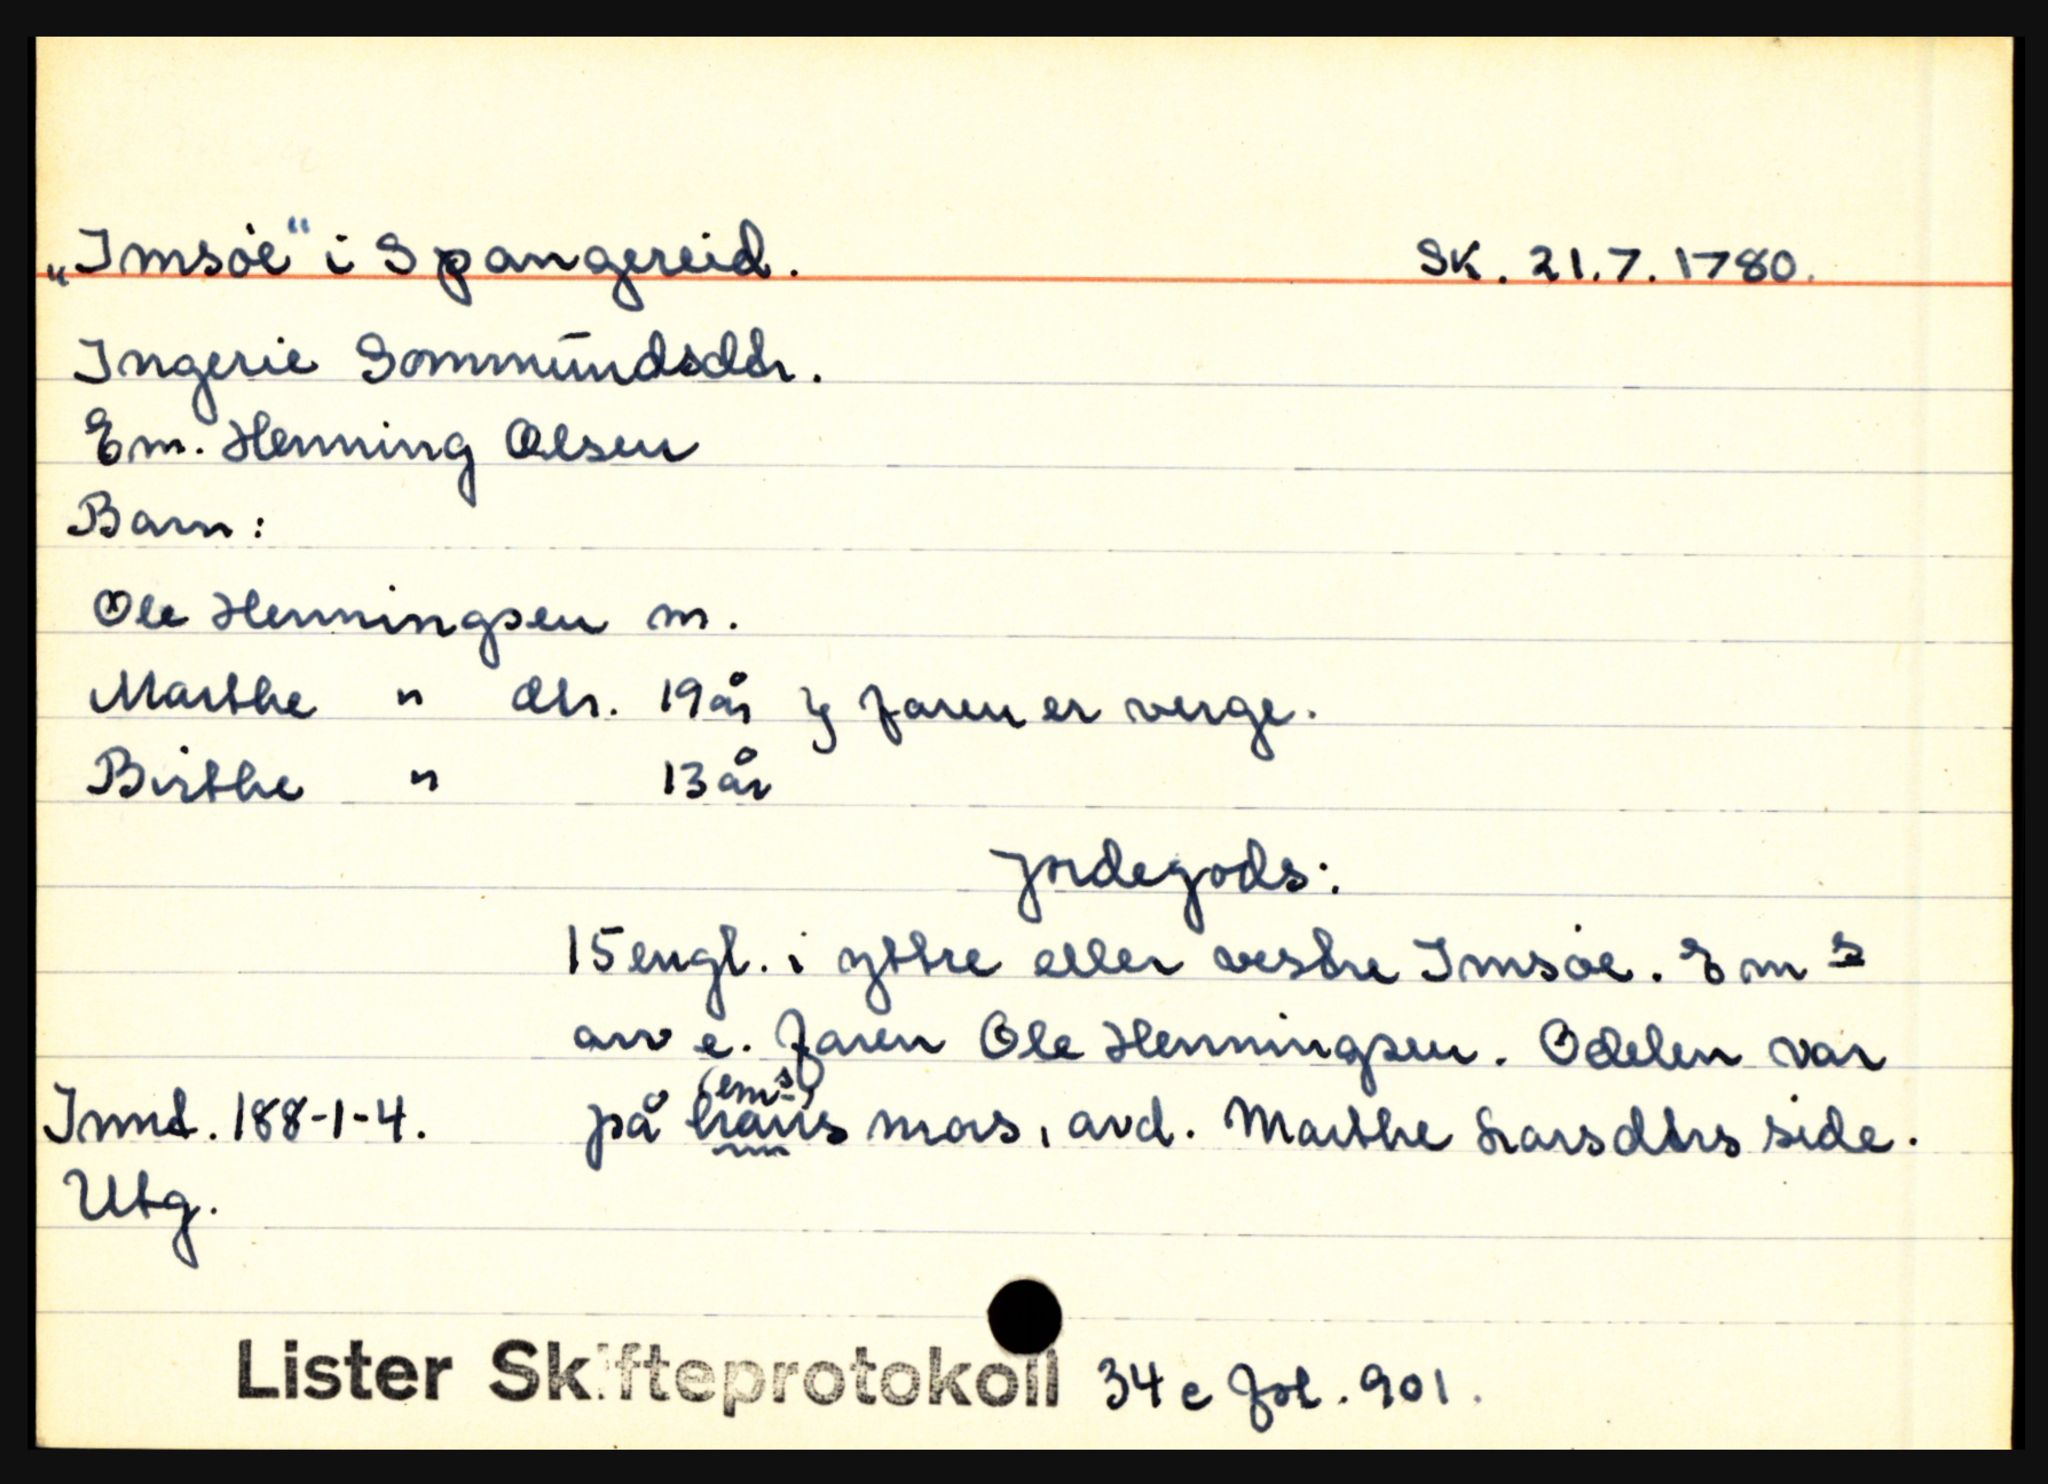 „Imsøe" i Spangereid. SK. 21.7.1780.
Ingerie Gommundsdtr.
Em. Henning Olsen
Barn:
Ole Henningsen m.
Marthe " dtr. 19 år } faren er verge.
Birthe " 13 år
Jordegods:
15 engl. i yttre eller vestre Imsøe. Em s
arv e. faren Ole Henningsen. Odelen var
(ems)
Innt. 188-1-4. på hans mors, avd. Marthe Larsdtrs side.
Utg.
Lister Skifteprotokoll 34 c fol. 901.